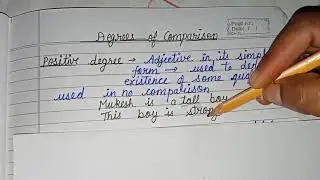 Degrees of Comparison
Positive degree → Adjective in its simple
form → used to
existence of some
used in no comparison
Mukesh is a tall boy
This boy is strong